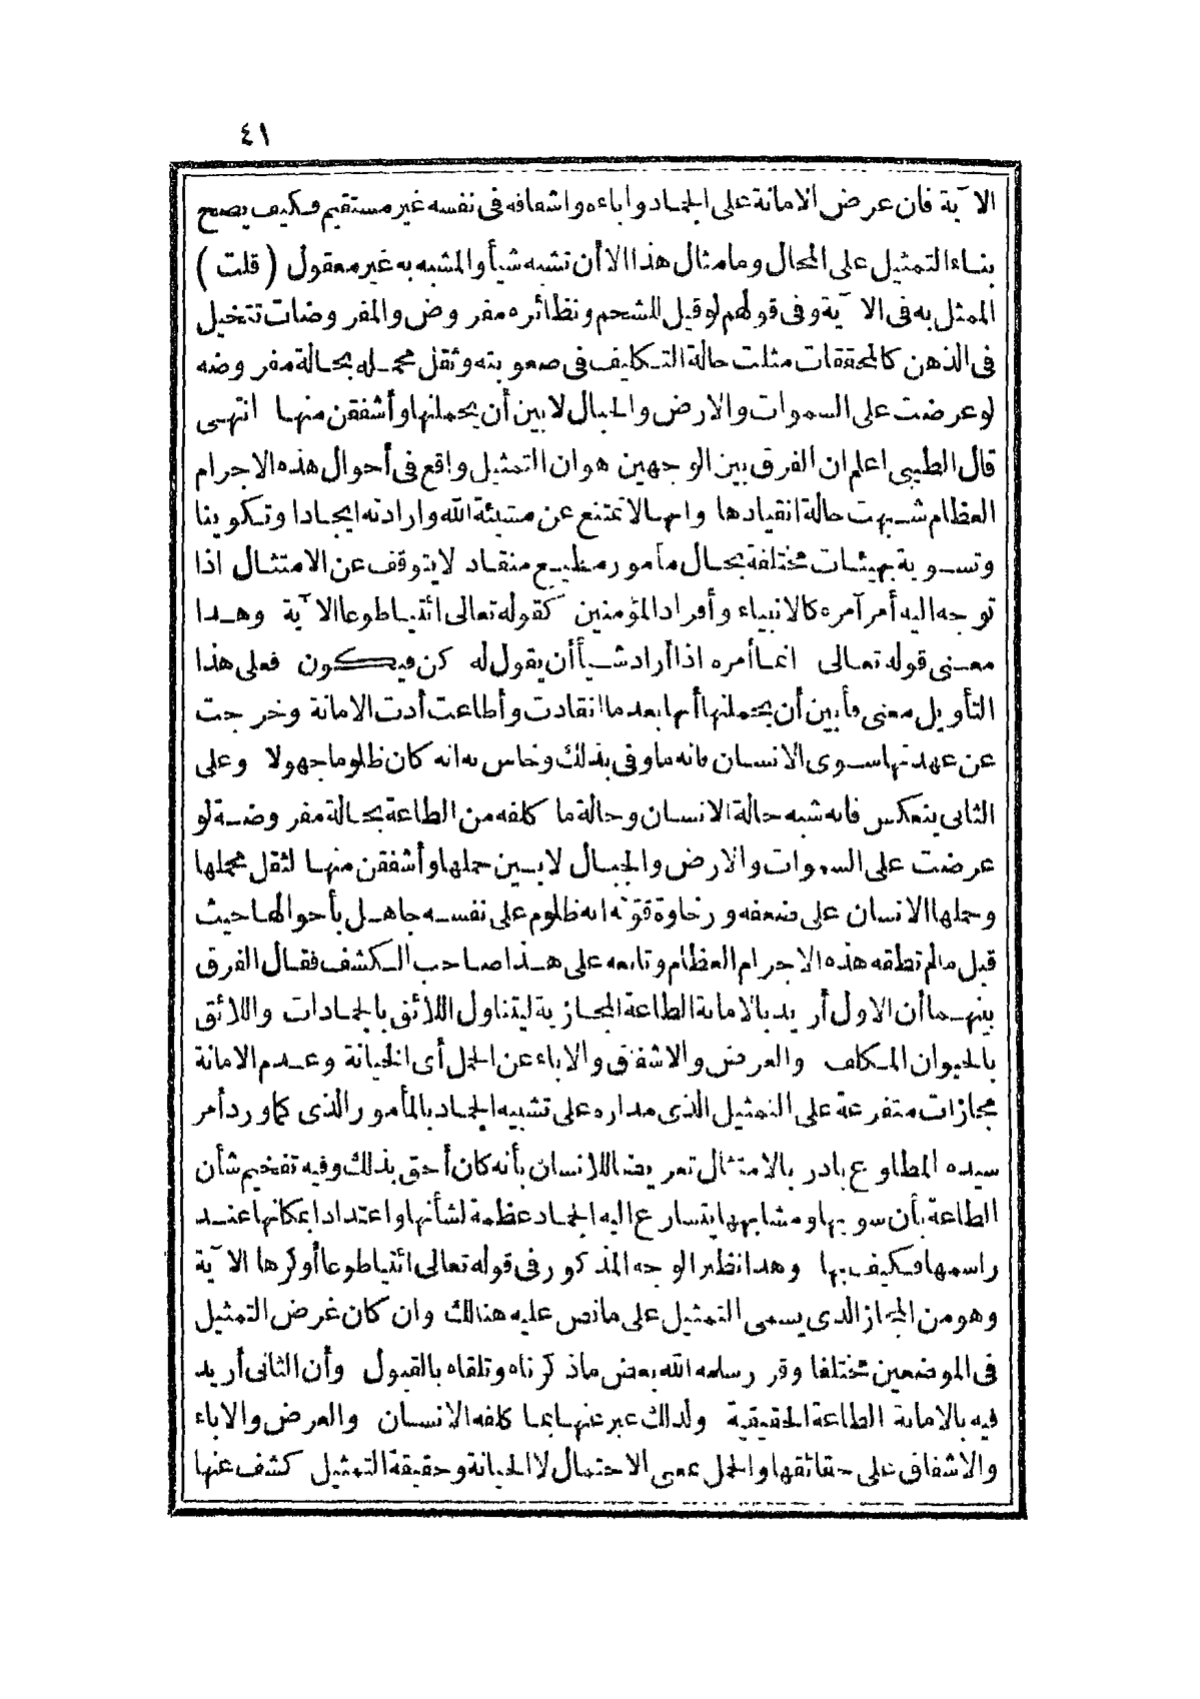 ٤١
الآية فان عرض الامانة على الجماد واباءه واشفاقه فى نفسه غير مستقيم فكيف يصح
بناء التمثيل على المحال وما مثال هذا الا أن تشبه شيأ والمشبه به غير معقول (قلت)
الممثل به فى الآية وفى قولهم لو قيل للشحم ونظائره مفروض والمفروضات تتخيل
فى الذهن كالمحققات مثلت حالة التكليف فى صعوبته وثقل محمله بحالة مفروضه
لو عرضت على السموات والارض والجبال لا بين أن يحملنها وأشفقن منها انتهى
قال الطيبى اعلم ان الفرق بين الوجهين هو ان التمثيل واقع فى أحوال هذه الاجرام
العظام شبهت حالة انقيادها وانها لا تمتنع عن مشيئة الله وارادته ايجادا وتكوينا
وتسوية بهيئات مختلفة بحال مأمور مطيع منقاد لا يتوقف عن الامتثال اذا
توجه اليه أمر آمره كالانبياء وأفراد المؤمنين كقوله تعالى ائتيا طوعا الآية وهذا
معنى قوله تعالى انما أمره اذا أراد شيأ أن يقول له كن فيكون فعلى هذا
التأويل معنى فأبين أن يحملنها أنها بعد ما انقادت وأطاعت أدت الامانة وخرجت
عن عهدتها سوى الانسان فانه ما وفى بذلك وخاس به انه كان ظلوما جهولا وعلى
الثانى ينعكس فانه شبه حالة الانسان وحالة ما كلفه من الطاعة بحالة مفروضة لو
عرضت على السموات والارض والجبال لا بين حملها وأشفقن منها لثقل محملها
وحملها الانسان على ضعفه ورخاوة قوته انه ظلوم على نفسه جاهل بأحوالها حيث
قبل ما لم تطقه هذه الاجرام العظام وتابعه على هذا صاحب الكشف فقال الفرق
بينهما أن الاول أريد بالامانة الطاعة المجازية ليتناول اللائق بالجمادات واللائق
بالحيوان المكلف والعرض والاشفاق والاباء عن الحمل أى الخيانة وعدم الامانة
مجازات متفرعة على التمثيل الذى مداره على تشبيه الجماد بالمأمور الذى كما ورد أمر
سيده المطاوع بادر بالامتثال تعريضا للانسان بأنه كان أحق بذلك وفيه تفخيم شأن
الطاعة بأن سويها ومشابهها يتسارع اليه الجماد عظمة لشأنها واعتدادا بمكانها عند
راسمها فكيف بها وهذا نظير الوجه المذكور فى قوله تعالى ائتيا طوعا أو كرها الآية
وهو من المجاز الذى يسمى التمثيل على ما نص عليه هنالك وان كان غرض التمثيل
فى الموضعين مختلفا وقرر سلمه الله بعض ما ذكرناه وتلقاه بالقبول وأن الثانى أريد
فيه بالامانة الطاعة الحقيقية ولذلك عبر عنها بما كلفه الانسان والعرض والاباء
والاشفاق على حقائقها والحمل بمعنى الاحتمال لا الخيانة وحقيقة التمثيل كشف عنها